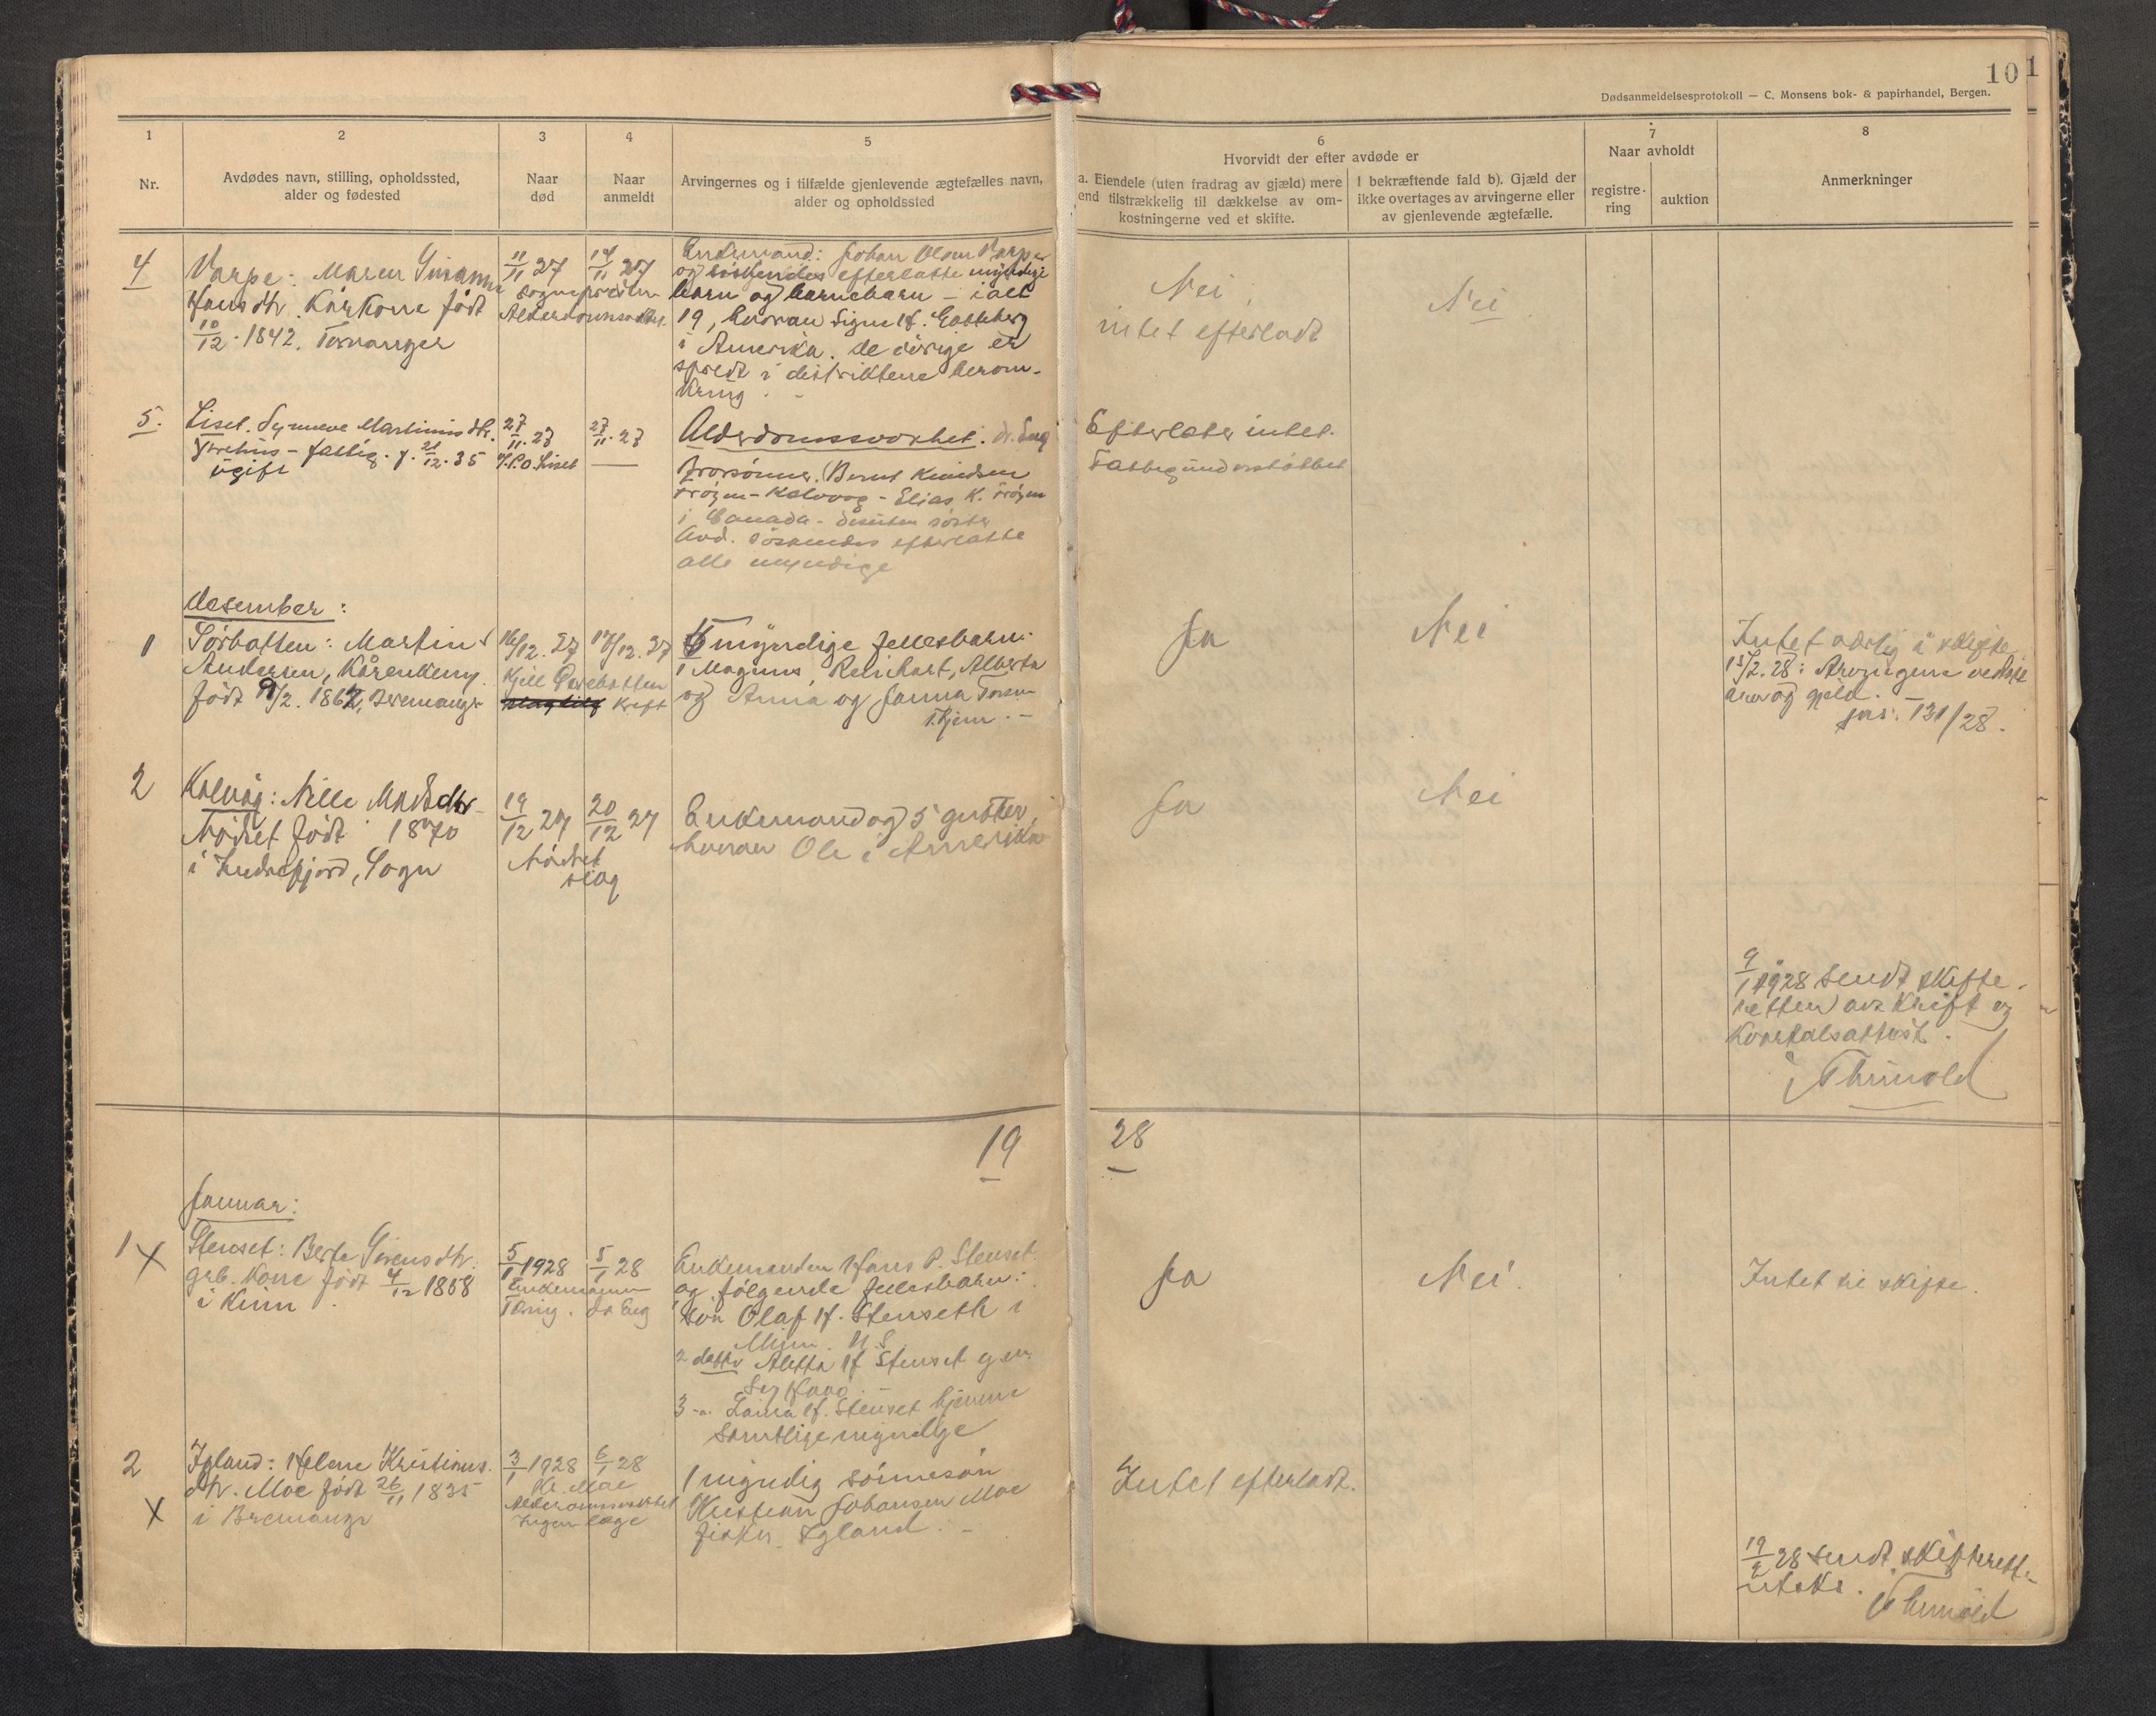 10 1
Dødsanmeldelsesprotokoll — C. Monsens bok- & papirhandel, Bergen.
1
Nr.
2
Avdødes navn, stilling, opholdssted,
alder og fødested
3
Naar
død
4
Naar
anmeldt
5
Arvingernes og i tilfælde gjenlevende ægtefælles navn,
alder og opholdssted
6
Hvorvidt der efter avdøde er
a. Eiendele (uten fradrag av gjæld) mere
end tilstrækkelig til dækkelse av om-
kostningerne ved et skifte.
I bekræftende fald b). Gjæld der
ikke overtages av arvingerne eller
av gjenlevende ægtefælle.
7
Naar avholdt
registre-
ring
auktion
8
Anmerkninger
4
Varpe: Maren Susanne
Hansdtr. Kårkone født
10/12 . 1842.
11/11 27
14/11 27
Sognepresten
Enkemand: Johan Olsen Varpe
og søskendes efterlatte myndige
barn og barnebarn — ialt
19, hvorav Signe H.
i Amerika. De øvrige er
spredt i distriktene herom-
kring.
Nei,
intet efterladt
Nei
5.
Liset. Synneve Martinusdtr.
fattig. f. 21/12. 35
ugift
27/11. 27
27/11. 27
Liset
Alderdomssvakhet. dr. Eug
Brorsønner. Bernt Knudsen
Frøyen - Kalvaag - Elias K. Frøyen
i Canada - desuten søster
Avd. søskendes efterlatte
alle myndige
Efterlater intet.
Fattigunderstøttet
Desember:
1
Sørbotten: Martin
Andersen, Kårenkem.
født 9/2. 1862, Bremanger
16/12. 27
17/12. 27
Kjell Sørbotten
Kreft
5 myndige fellesbarn:
Magnus, Reinhart, Alberta
og Anna og Janna
hjem. —
Ja
Nei
Intet særlig å skifte
15/2. 28: Arvingene vedgått
arv og gjeld. —
jnr. 131/28.
2
Kalvåg: Nille Madsdtr.
Nødset født 1870
i Indrefjord, Sogn
19/12 27
20/12 27
Nødset
slag
Enkemand og 5 gutter,
hvorav Ole i Amerika
Ja
Nei
9/1 1928 sendt skifte-
retten avskrift og
kvartalsattest.
Thunold
19 28
Januar:
1 X
Stenset: Berte Sivensdtr.
født 4/12 1858
i Kinn
5/1 1928
5/1 28
Enkemann
Tæring. dr Eug
Enkemanden Hans P. Stenset
og følgende fellesbarn:
1 søn Olaf H. Stenseth i
Minn. U.S.
2 datter Aletta H Stenset
3 -"- Laura H. Stenset hjemme
samtlige myndige
Ja
Nei.
Intet til skifte.
2
X
Igland: Helene Kristians-
dtr. Moe født 26/11 1835
i Bremanger
3/1 1928
6/1 28
Kr. Moe
Alderdomssvakhet
Ingen læge
1 myndig sønnesøn
Kristian Johansen Moe
fisker. Igland. —
Intet efterladt.
19/2 28 sendt skifterett-
utskr.
Thunold